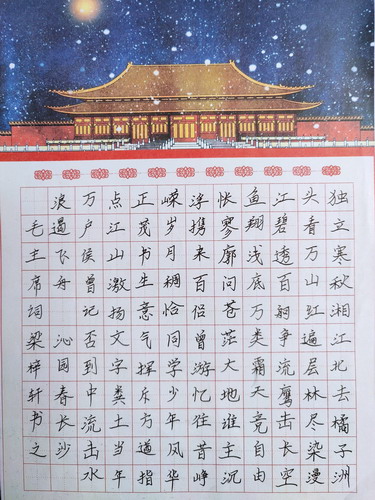 独立寒秋湘江北去橘子洲
头看万山红遍层林尽染漫
江碧透百舸争流鹰击长空
鱼翔浅底万类霜天竞自由
怅寥廓问苍茫大地谁主沉
浮携来百侣曾游忆往昔峥
嵘岁月稠恰同学少年风华
正茂书生意气挥斥方遒指
点江山激扬文字粪土当年
万户侯曾记否到中流击水
浪遏飞舟 沁园春长沙
毛主席词梁梓轩书之